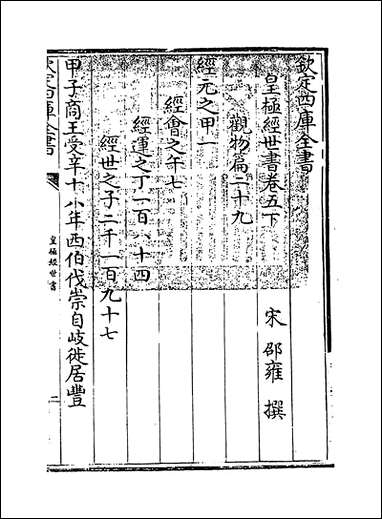 欽定四庫全書
皇極經世書卷五下
宋 邵雍 撰
觀物篇二十九
經元之甲一
經會之午七
經運之丁一百八十四
經世之子二千一百九十七
甲子商王受辛十八年西伯伐崇自岐徙居豐
欽定四庫全書
皇極經世書
二